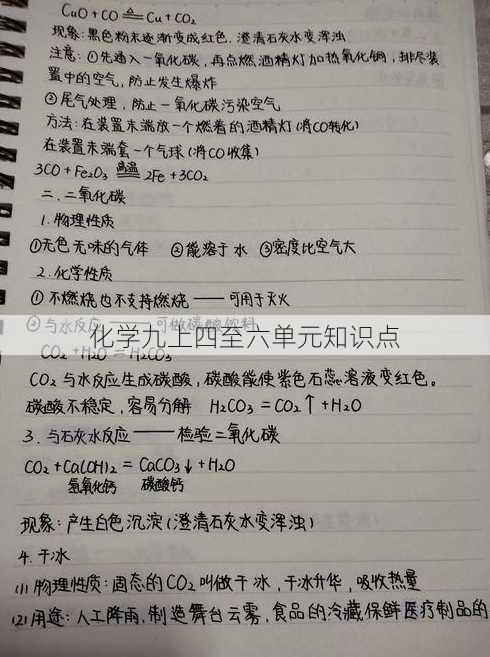 CuO + CO △= Cu + CO₂
现象: 黑色粉末逐渐变成红色, 澄清石灰水变浑浊
注意: ①先通入一氧化碳, 再点燃酒精灯加热氧化铜, 排尽装
置中的空气, 防止发生爆炸
②尾气处理, 防止一氧化碳污染空气
方法: 在装置末端放一个燃着的酒精灯(将CO转化)
在装置末端套一个气球(将CO收集)
3CO + Fe₂O₃ 高温= 2Fe + 3CO₂
二、二氧化碳
1. 物理性质
①无色无味的气体 ②能溶于水 ③密度比空气大
2. 化学性质
①不燃烧也不支持燃烧 —— 可用于灭火
②与水反应 —— 可做碳酸饮料
化学九上四至六单元知识点
CO₂ + H₂O = H₂CO₃
CO₂与水反应生成碳酸, 碳酸能使紫色石蕊溶液变红色。
碳酸不稳定, 容易分解 H₂CO₃ = CO₂↑ + H₂O
3. 与石灰水反应 —— 检验二氧化碳
CO₂ + Ca(OH)₂ = CaCO₃↓ + H₂O
氢氧化钙 碳酸钙
现象: 产生白色沉淀(澄清石灰水变浑浊)
4. 干冰
(1) 物理性质: 固态的CO₂叫做干冰, 干冰升华, 吸收热量
(2) 用途: 人工降雨, 制造舞台云雾, 食品的冷藏保鲜医疗制品的